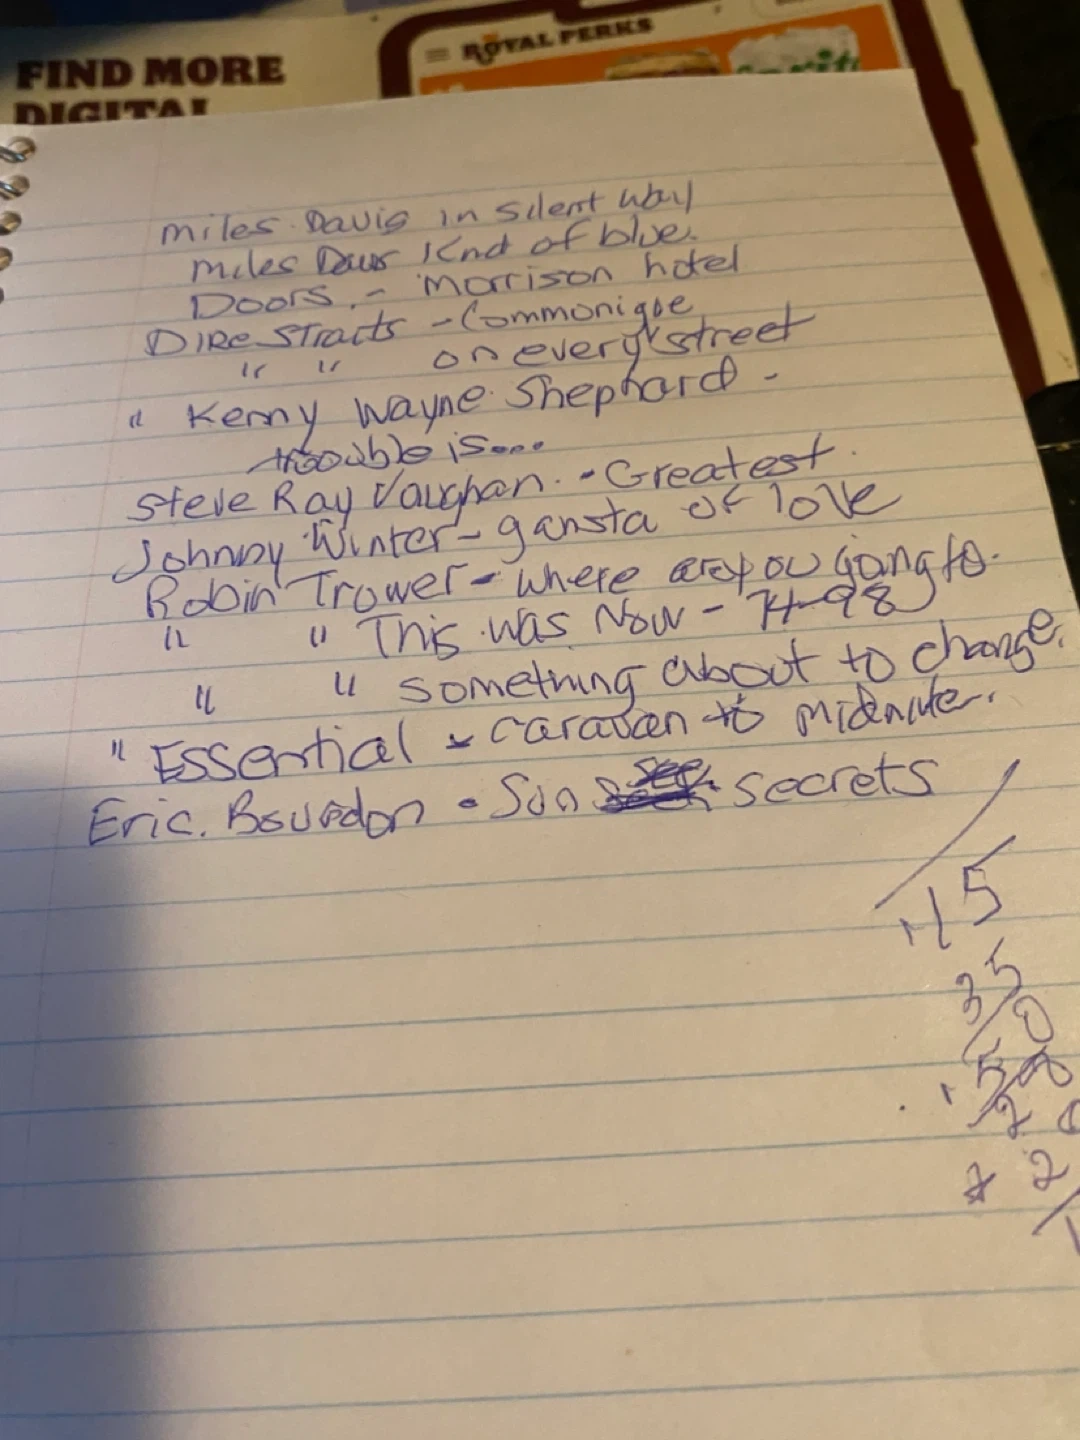 FIND MORE
DIGITAL
ROYAL PERKS
miles Davis in Silent Way
miles Davis Kind of blue.
Doors. - Morrison hotel
DIRE Straits - Commoniqoe
" " on every street
" Kenny Wayne Shephard -
trouble is....
Steve Ray Vaughan. - Greatest.
Johnny Winter - gansta of love
Robin Trower - where are you going to.
" " This was Now - 74-98
" " something about to change.
" Essential - caravan to midnite.
Eric. Bourdon - Sun secrets
15
35